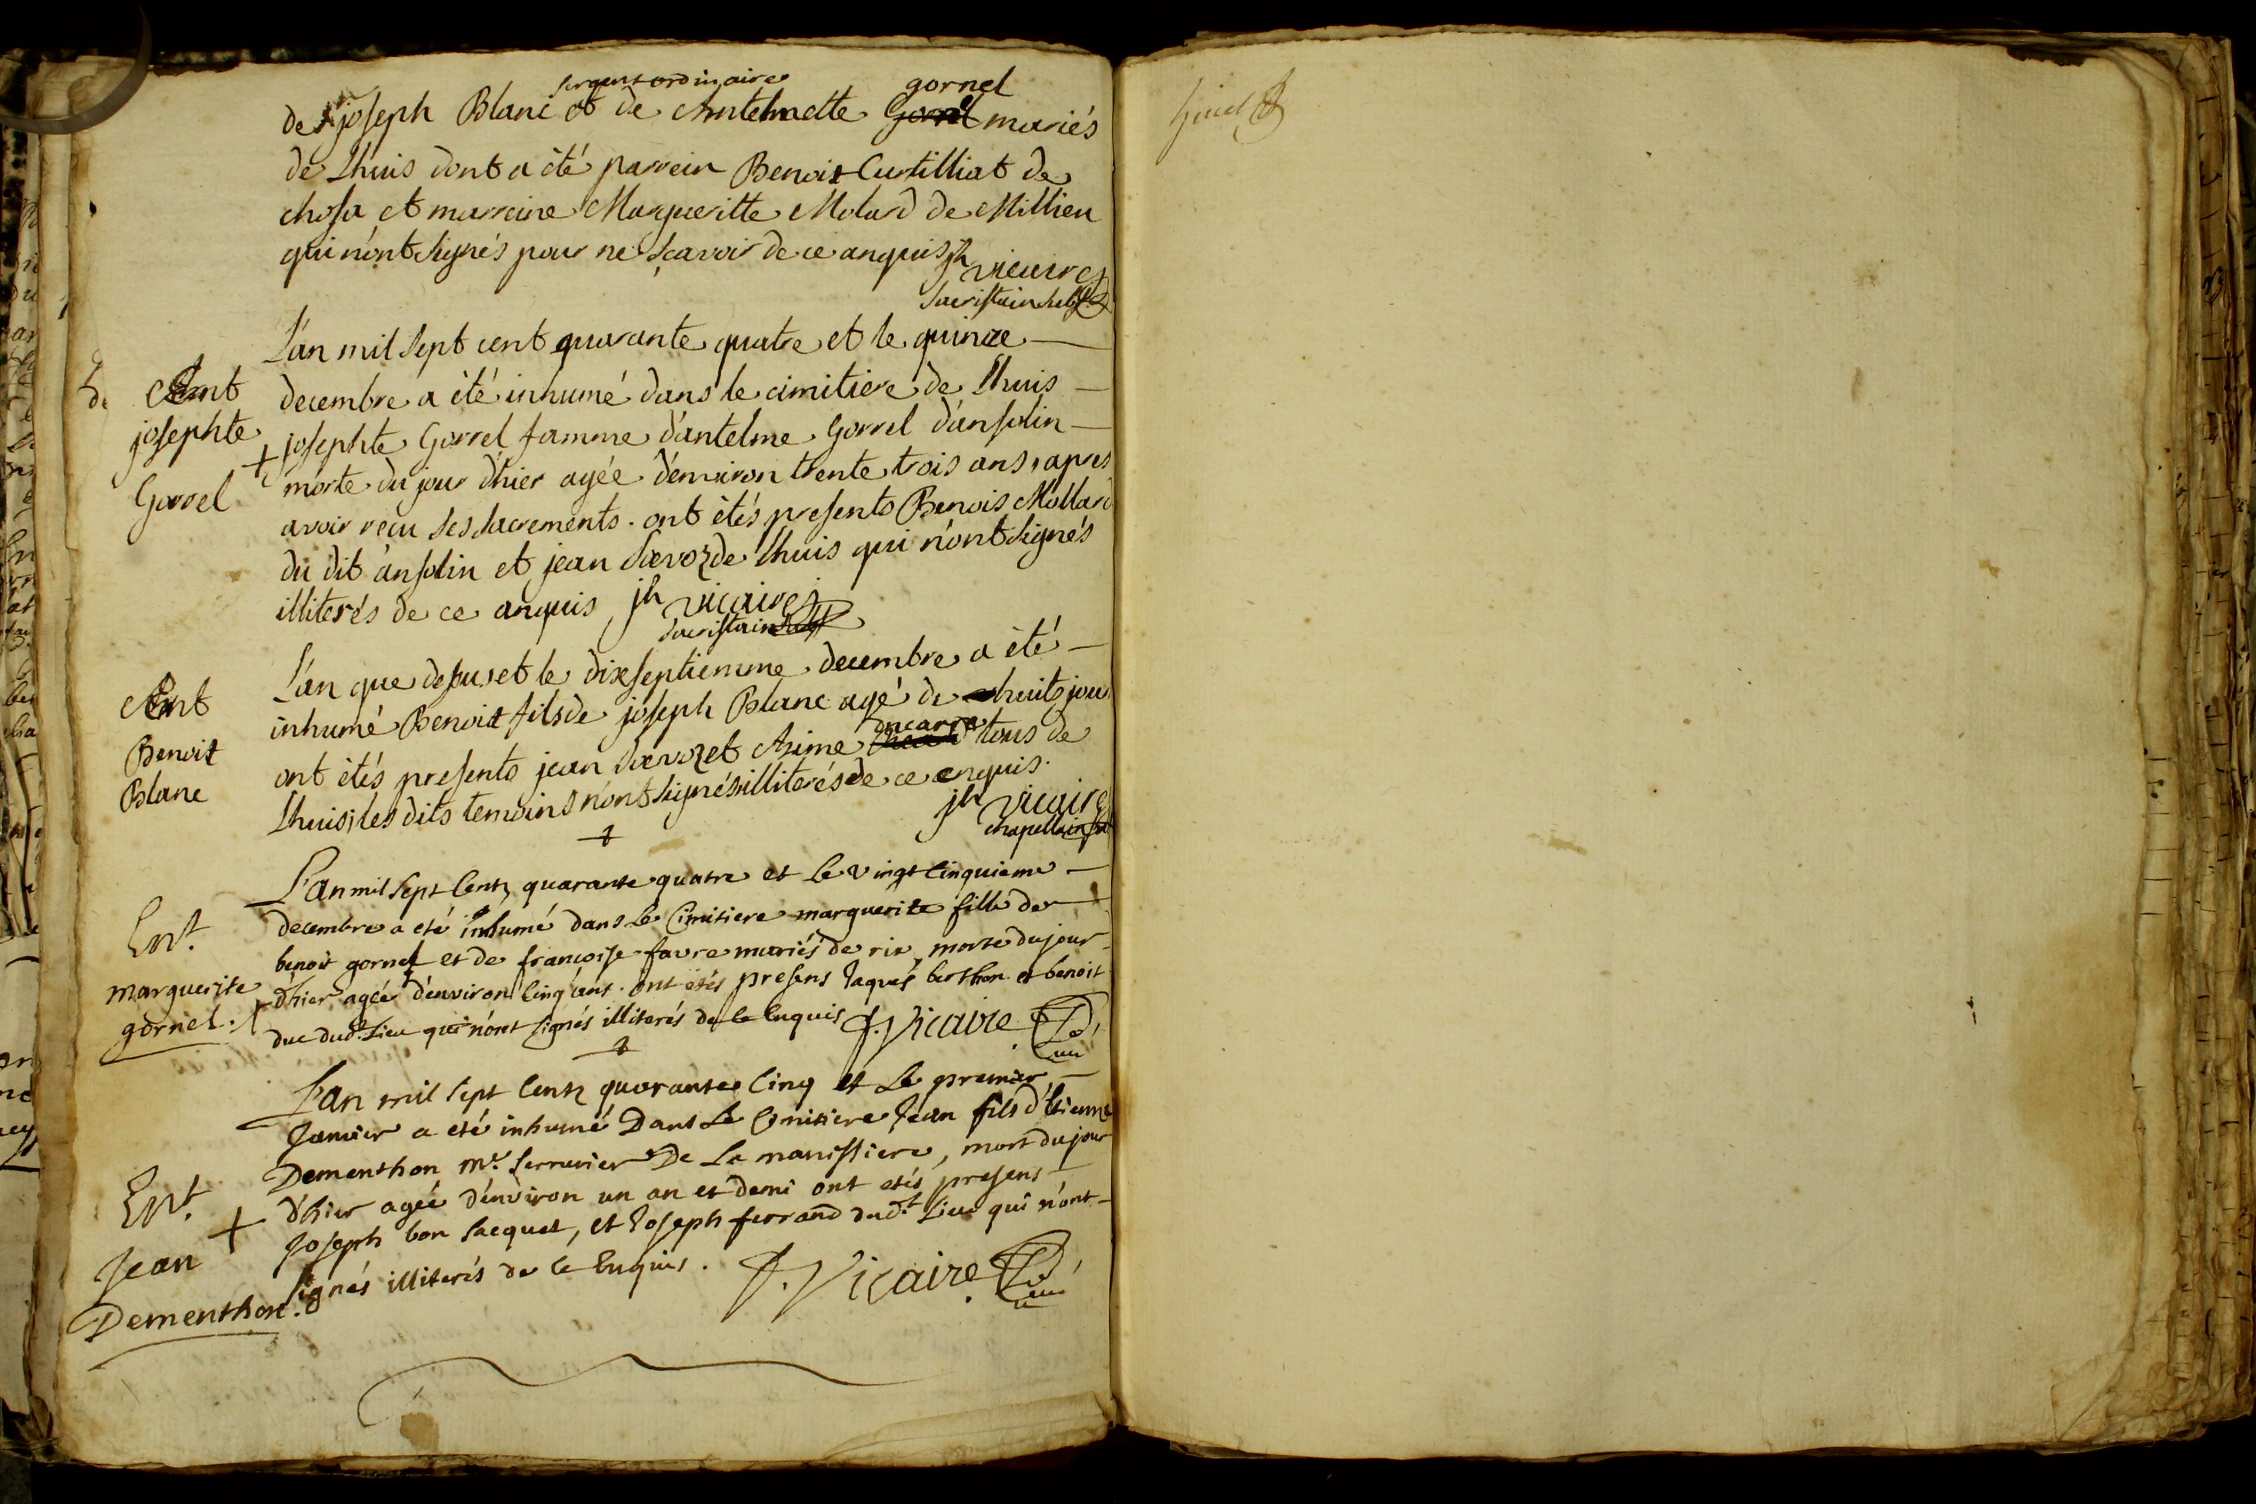 sergent ordinaire gornel
de joseph Blanc et de Antelmette Gorrel mariés
de Lhuis dont a été parrein Benoit Curtilliat de
chosa et marreine Margueritte Molard de Millieu
qui n'ont signés pour ne sçavoir de ce anquis jh vicaire
sacristain
L'an mil sept cent quarante quatre et le quinze
Ent decembre a été inhumé dans le cimitiere de Lhuis
josephte josephte Gorrel famme d'antelme Gorrel d'ansolin
Gorrel + morte du jour d'hier agée d'environ trente trois ans, apres
avoir reçu ses sacrements. ont étés presents Benois Mollard
du dit ansolin et jean de Lhuis qui n'ont signés
illiterés de ce anquis jh vicaire
sacristain
L'an que desus et le dixseptiemme decembre a été
Ent inhumé Benoit fils de joseph Blanc agé de huit jour
Benoit ont étés presents jean et Aime ducarre tous de
Blanc Lhuis, les dits temoins n'ont signés illiterés de ce enquis.
jh vicaire
chapellain
L'an mil sept Centz quarante quatre et Le vingt Cinquieme
Ent. decembre a eté inhumé dans Le Cimitiere marguerite fille de
marguerite benoit gornel et de françoise favre mariés de rix, morte du jour
gornel. + d'hier agéé d'environ Cinq ans. ont étés presens Jaques berthon et benoit
duc dud. Lieu qui n'ont signés illiterés de Ce Enquis J. Vicaire
Curé
L'an mil sept Centz quarante Cinq et Le premier
Janvier a eté inhumé Dans Le Cimitiere Jean fils d'Etienne
Ent. Dementhon me. serrurier De La manissiere, mort du jour
Jean + d'hier agéé d'environ un an et demi ont etés presens
Dementhon. Joseph bon Jacquet, et Joseph ferrand dud.t Lieu qui n'ont
signés illiterés de Ce Enquis. J. Vicaire
Curé